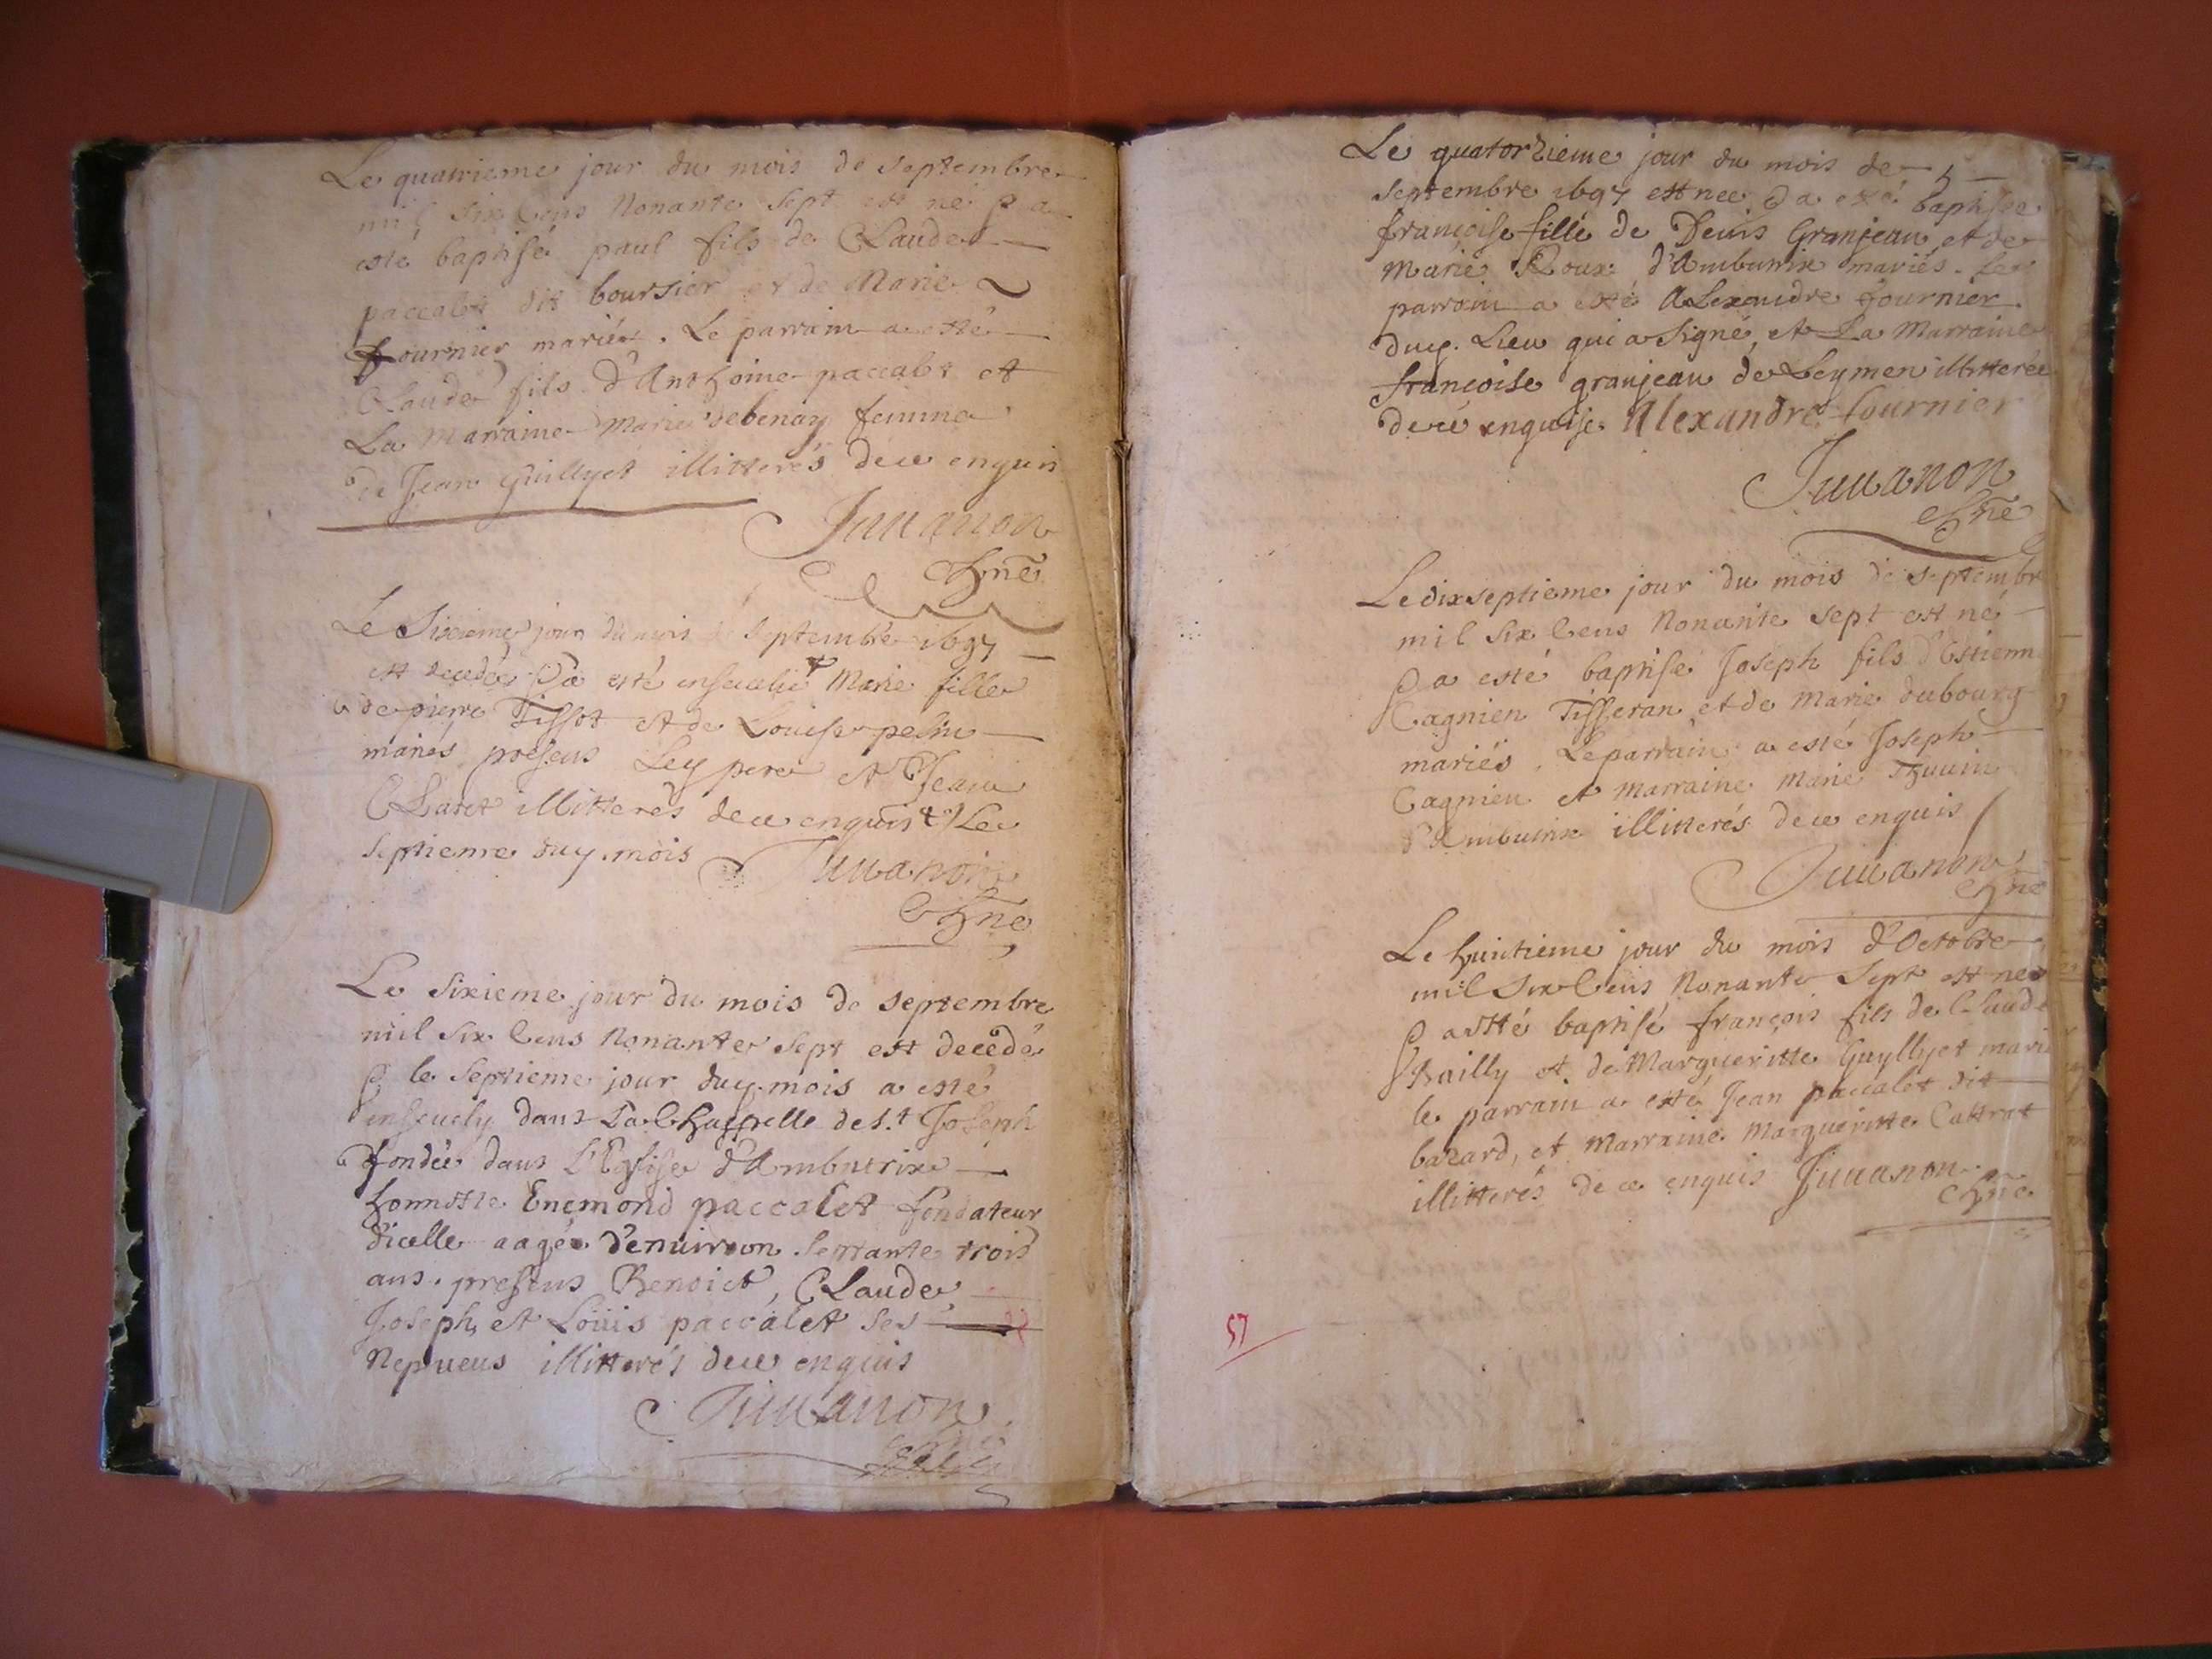 Le quatrieme jour du mois de septembre
mil six Cens Nonante sept est né & a
esté baptisé paul fils de Claude
paccalet dit boursier et de Marie
fournier mariés. Le parrain a esté
Claude fils d'Anthoine paccalet et
La Marraine Marie debenay femme
de Jean Guillyet illitterés de ce enquis
Juuanon
Le Sixieme jour du mois de septembre 1697
est decedée & a esté enseuelie Marie fille
de pierre Tissot et de Louise
mariés presens Ley pere et Jean
Claret illitterés de ce enquis Le
septieme duy. mois Juuanon
Le sixieme jour du mois de septembre
mil six Cens Nonante sept est decedé
& le septieme jour duy. mois a esté
enseuely dans La Chappelle de s.t Joseph
fondée dans L'Eglise d'Ambutrix
honneste Enemond paccalet fondateur
d'icelle aagé d'enuiron septante trois
ans. presens Benoict, Claude,
Joseph et Loüis paccalet ses
Nepueus illitterés de ce enquis
Juuanon
Le quatorzieme jour du mois de
septembre 1697 est nee & a esté baptisée
françoise fille de Denis Granjean et de
Marie Roux d'Ambutrix mariés. Le
parrain a esté Alexandre fournier
duy. Lieu qui a signé, et La Marraine
françoise granjean de Leymen illitterée
de ce enquise. Alexandre fournier
Juuanon
Le dixseptieme jour du mois de septembre
mil six Cens Nonante sept est né
& a esté baptisé Joseph fils d'Estienne
Cagnien Tisseran et de Marie dubourg
mariés. Le parrain a esté Joseph
Cagnien et marraine Marie Thuuin
d'Ambutrix illitterés de ce enquis
Juuanon
Le huictieme jour du mois d'Octobre
mil six Cens Nonante sept est né
& a esté baptisé françois fils de Claude
Bailly et de Margueritte Guyllyet mariés
le parrain a esté Jean paccalet dit
bazard, et Marraine Margueritte Cattrat
illitterés de ce enquis Juuanon
57